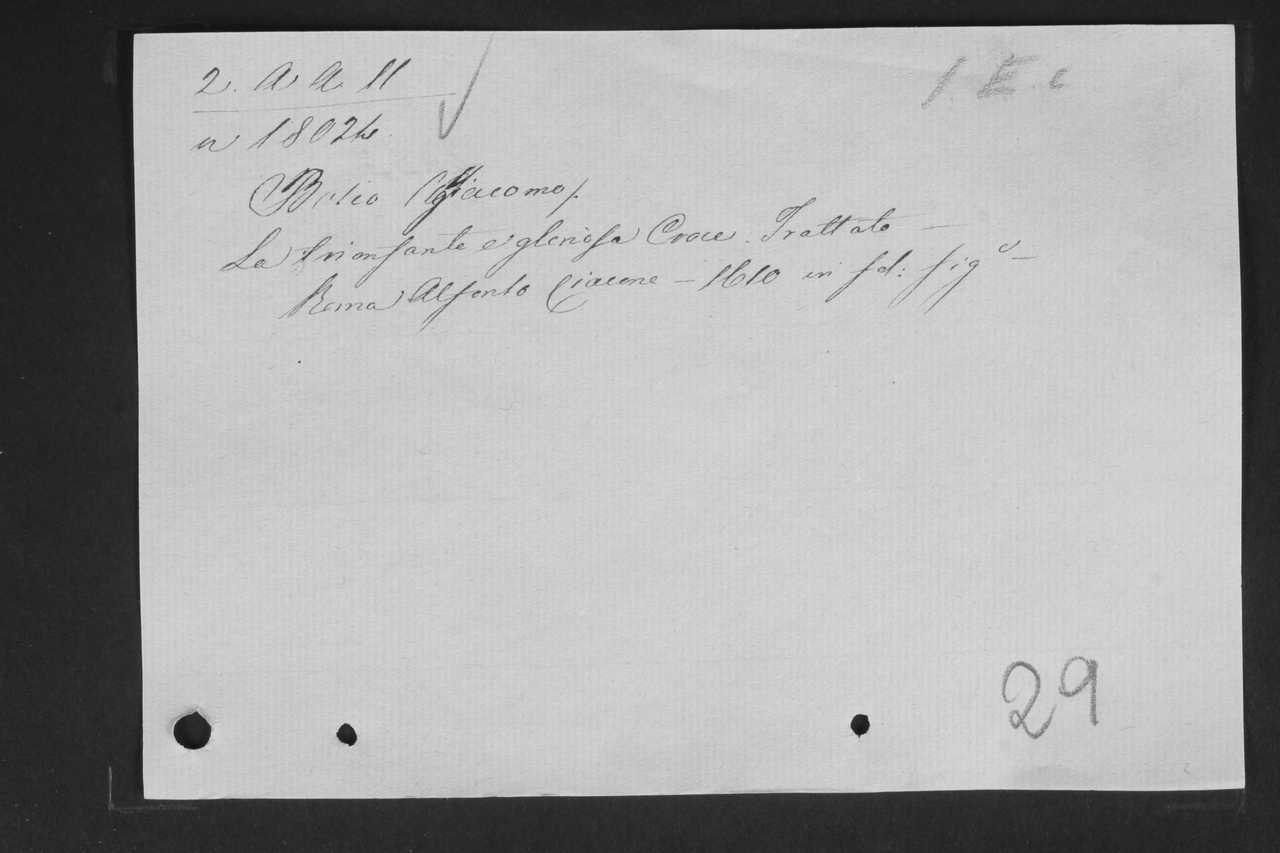 2. A A 11
1 E c
n 18024
Bosio (Giacomo).
La trionfante e gloriosa Croce. Trattato —
Roma Alfonso Ciacone — 1610 in fol: fig.º —
29